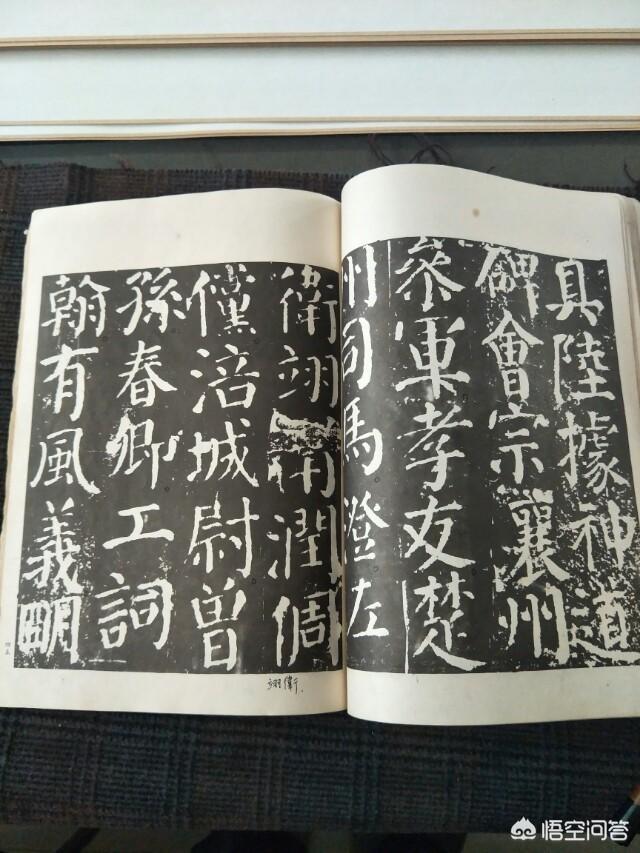 真陸據神道
碑會宗襄州
參軍孝友楚
州司馬澄左
衛翊
潤倜
儻涪城尉曾
孫春卿工詞
翰有風義明
翊衛
四五
悟空问答